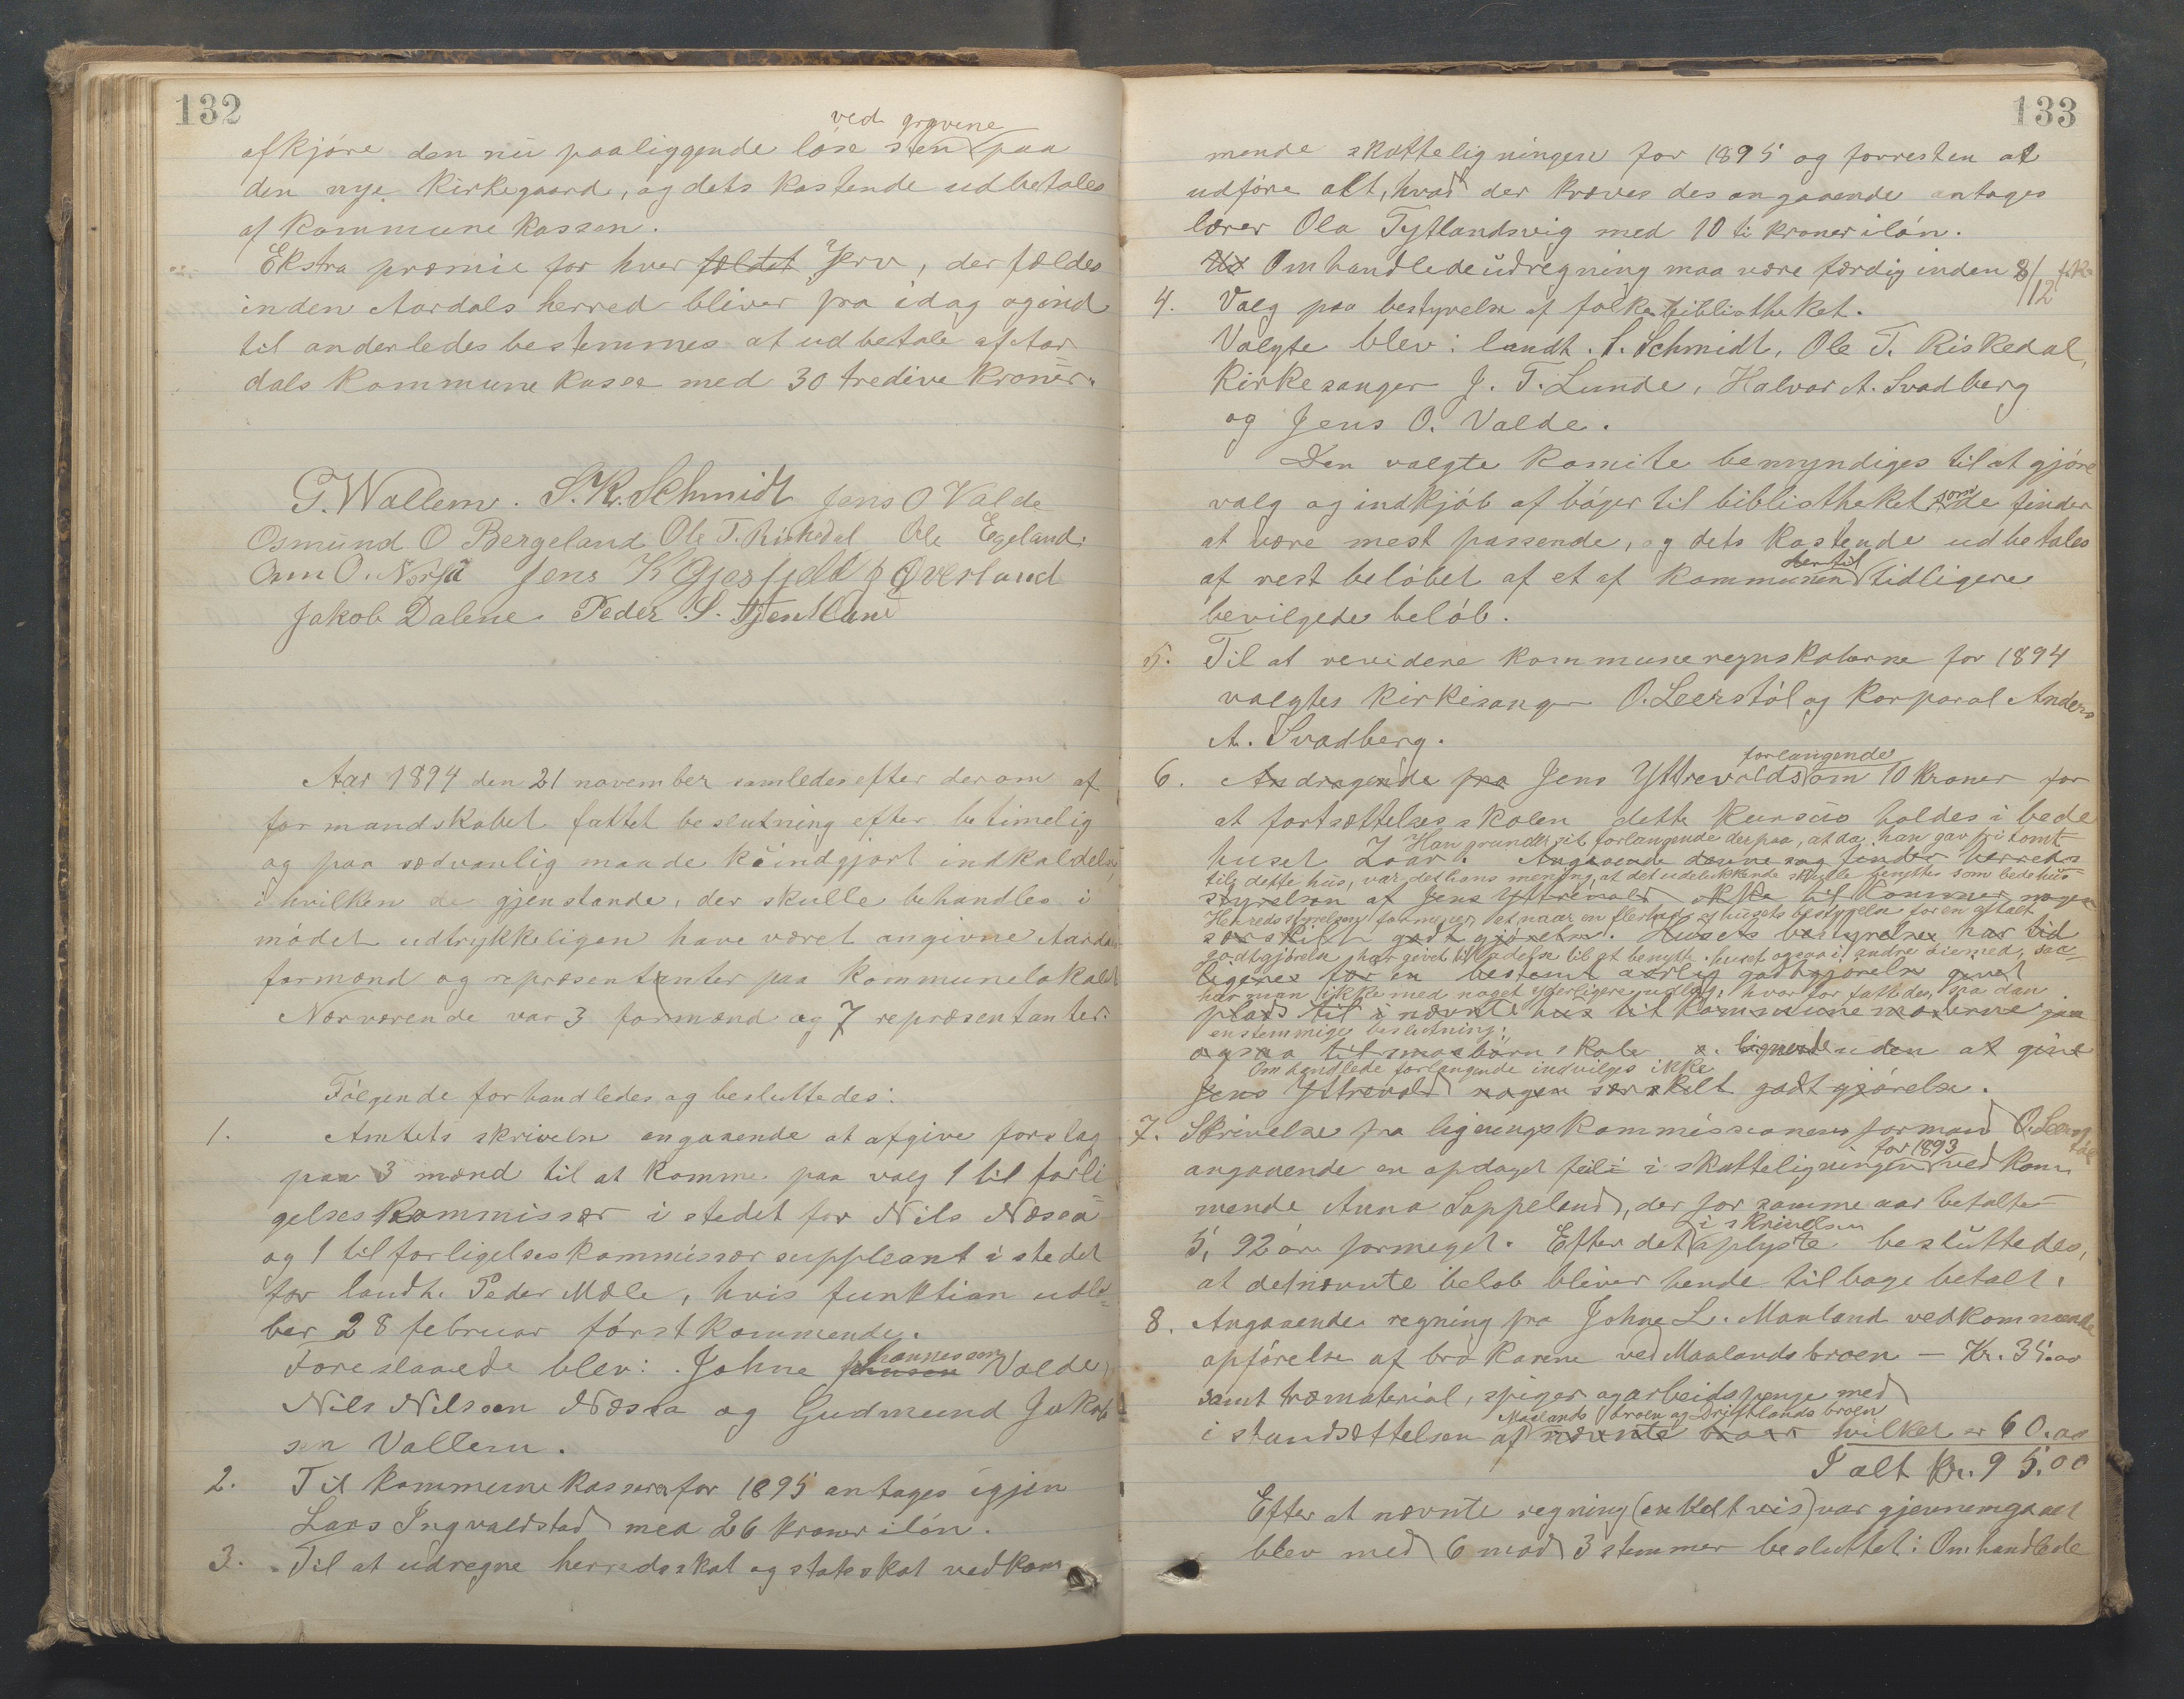 132
ved gravene
afkjøre den nu paaliggende løse sten paa
den nye Kirkegaard, og dets kostende udbetales
af Kommunekassen.
Ekstra præmie for hver fældet Jerv, der fældes
inden Aardals herred bliver fra idag og ind
til anderledes bestemmes at udbetale af Aar
dals Kommunekasse med 30 tredive Kroner.
G. Wallem. S. K. Schmidt Jens O Valde
Osmund O Bergeland Ole T. Riskedal Ole Egeland
Onn O. Nessa Jens K Gjesfjeld J Øverland
Jakob Dalene. Peder S. Tjentland
Aar 1894 den 21 november samledes efter derom af
formandskabet fattet beslutning efter betimelig
og paa sædvanlig maade kundgjort indkaldelse,
i hvilken de gjenstande, der skulle behandles i
mødet udtrykkeligen have været angivne Aardals
formænd og repræsentanter paa Kommunelokalet
Nærværende var 3 formænd og 7 repræsentanter.
Følgende forhandledes og besluttedes:
1. Amtets skrivelse angaaende at afgive forslag
paa 3 mænd til at komme paa valg 1 til forli
gelseskommissær i stedet for Nils Næssa
og 1 til forligelseskommissærsuppleant i stedet
for landh. Peder Mæle, hvis funktion udlø=
ber 28 februar førstkommende.
hannessen
Foreslaaede blev: Johne Johnsen Valde,
Nils Nilssen Næssa og Gudmund Jakob
sen Vallem.
2. Til Kommunekasserer for 1895 antages igjen
Lars Ingvaldstad med 26 kroner i løn.
3. Til at udregne herredsskat og statsskat vedkom
133
mende skatteligningen for 1895 og forresten at
udføre alt, hvad der kræves des angaaende antages
lærer Ola Tytlandsvig med 10 ti kroner i løn.
Ud Omhandlede udregning maa være færdig inden 8/12
4. Valg paa bestyrelse af folkebibliotheket.
Valgte blev: landh. S. Schmidt, Ole T. Riskedal,
Kirkesanger J. T. Lunde, Halvor A. Svadberg
og Jens O. Valde.
Den valgte komite bemyndiges til at gjøre
valg og indkjøb af bøger til bibliotheket som de finder
at være mest passende, og dets kostende udbetales
dertil
af rest beløbet af et af kommunen tidligere
bevilgede beløb.
5. Til at revidere kommuneregnskaberne for 1894
valgtes Kirkesanger O. Leerstøl og Korporal Anders
A. Svadberg.
forlangende
6. Andragende fra Jens Yttrevolds om 10 kroner for
at fortsættelsesskolen dette kursus holdes i bede
Han grunder sit forlangende derpaa, at da han gav fri tomt
huset Zoar. Angaaende denne sag finder herreds
til dette hus, var det hans mening, at det udelukkende skulle benyttes som bedehus
styrelsen af Jens Yttrevold ikke til kommer nogen
Herredsstyrelsen formener, at naar en flerhed af husets bestyrelse for en aftalt
særskilt godtgjørelse. Husets bestyrelse har tid
godtgjørelse har givet tilladelse til at benytte huset ogsaa i andre øiemed, saa
ligere for en bestemt aarlig godtgjørelse givet
har man ikke med noget yderligere udlæg, hvorfor fattedes saadan
plads til i nævnte hus til kommunemøderne
enstemmige beslutning:
ogsaa til smaabørnskole o. lignende uden at give
Omhandlede forlangende indvilges ikke
Jens Yttrevold nogen særskilt godtgjørelse.
7. Skrivelse fra ligningskommissionens formand O. Leerstøl
for 1893
angaaende en opdaget feil i skatteligningen vedkom
mende Anna Soppeland, der for samme aar betalte
i skrivelsen
5, 92 øre formeget. Efter det oplyste besluttedes,
at detnævnte beløb bliver hende tilbagebetalt.
8. Angaaende regning fra Johne L. Maaland vedkommende
opførelse af brokarene ved Maalandsbroen – Kr. 35.00
samt træmaterial, spiger og arbeidspenge med
Maalands broen og Driftlands broen
istandsættelsen af nævnte broer hvilket er 60.00
I alt Kr. 95.00
Efter at nævnte regning (enkeltvis) var gjennemgaaet
blev med 6 mod 3 stemmer besluttet: Omhandlede